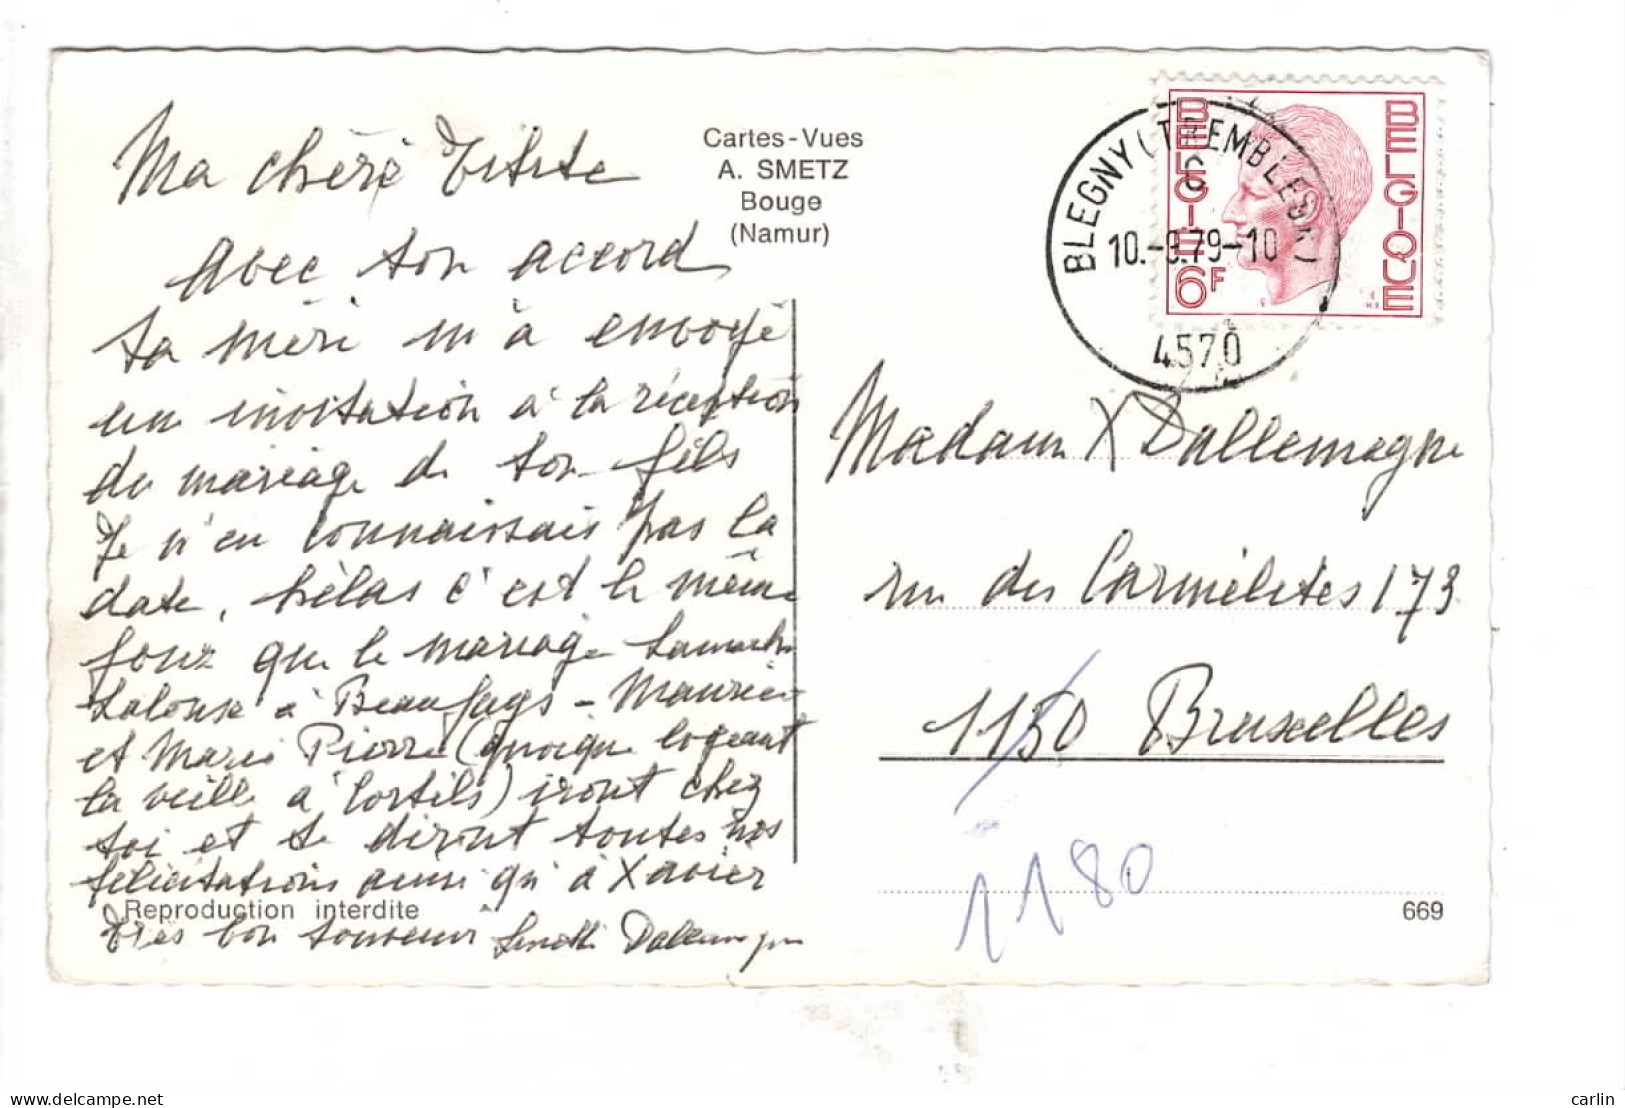 Ma chère Titite
Cartes-Vues
A. SMETZ
Bouge
(Namur)
Avec ton accord
ta mère m'a envoyé
un invitation à la réception
du mariage de ton fils
Je n'en connaissais pas la
date, hélas c'est le même
jour que le mariage
Lalouse à Beaufays - Maurice
et Marie Pierre (quoique logeant
la veille à Cortils) iront chez
toi et te diront toutes nos
félicitations ainsi qu'à Xavier
Reproduction interdite
très bon souvenir Dallemagne
BELGIE BELGIQUE
6F
BLEGNY (TREMBLEUR)
C
10.-9.79-10
4570
Madame X Dallemagne
rue des Carmélites 173
1150 Bruxelles
1180
669
delcampe.net
carlin